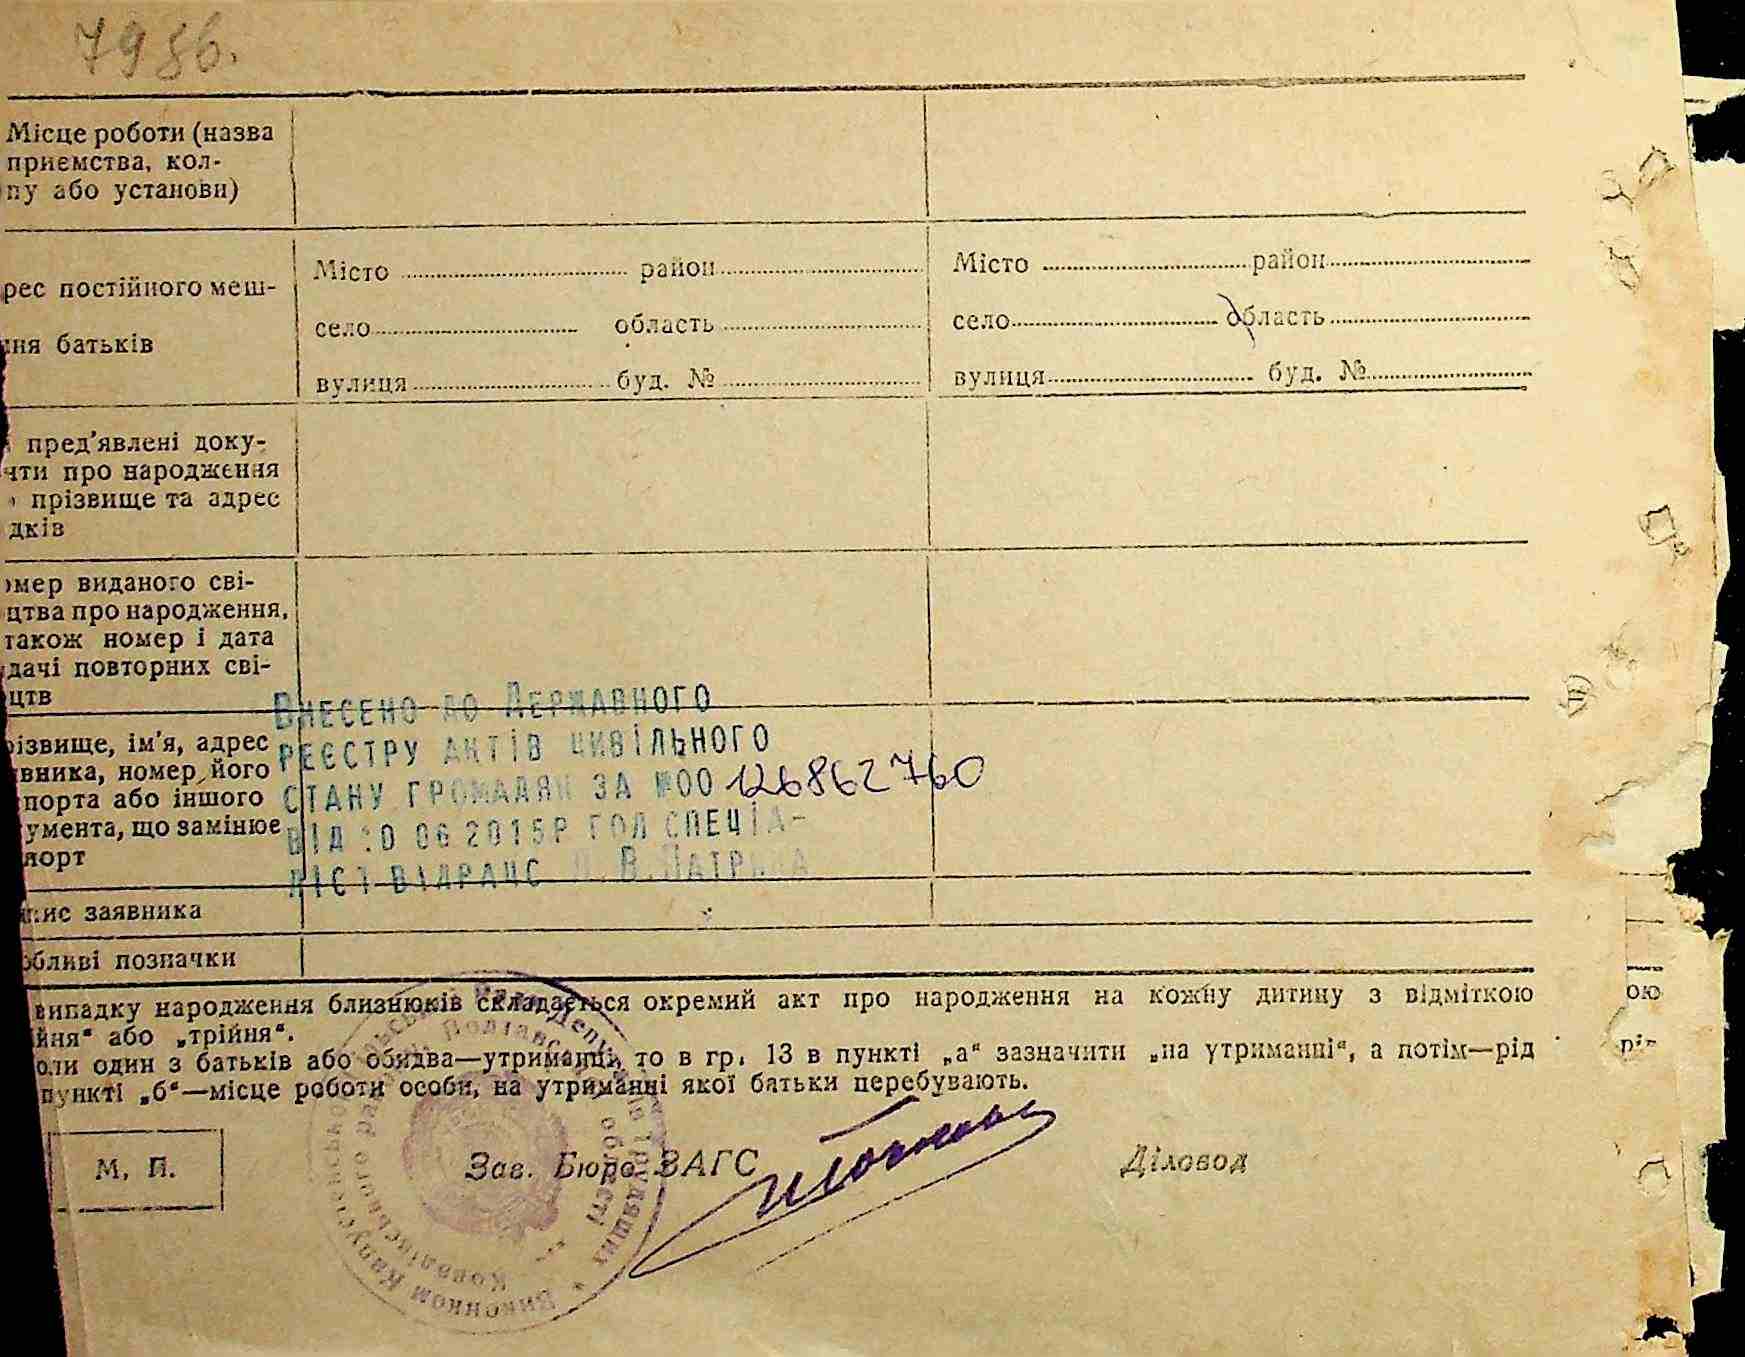 7986.
Місце роботи (назва
приємства, кол-
пу або установи)
Місто район
Місто район
рес постійного меш-
село область
село область
ння батьків
вулиця буд. №
вулиця буд. №
пред'явлені доку-
нти про народження
прізвище та адрес
дків
омер виданого сві-
цтва про народження,
також номер і дата
дачі повторних сві-
цтв
Внесено до Державного
реєстру актів цивільного
стану громадян за №00 126862760
від 10 06 2015р гол спеціа-
ліст відрацс
різвище, ім'я, адрес
вника, номер його
порта або іншого
умента, що замінює
порт
пис заявника
обливі позначки
випадку народження близнюків складається окремий акт про народження на кожну дитину з відміткою
йня" або „трійня".
оли один з батьків або обидва—утриманці, то в гр. 13 в пункті „а" зазначити „на утриманні", а потім—рід
пункті „б"—місце роботи особи, на утриманні якої батьки перебувають.
М. П.
Зав. Бюро ЗАГС
Діловод